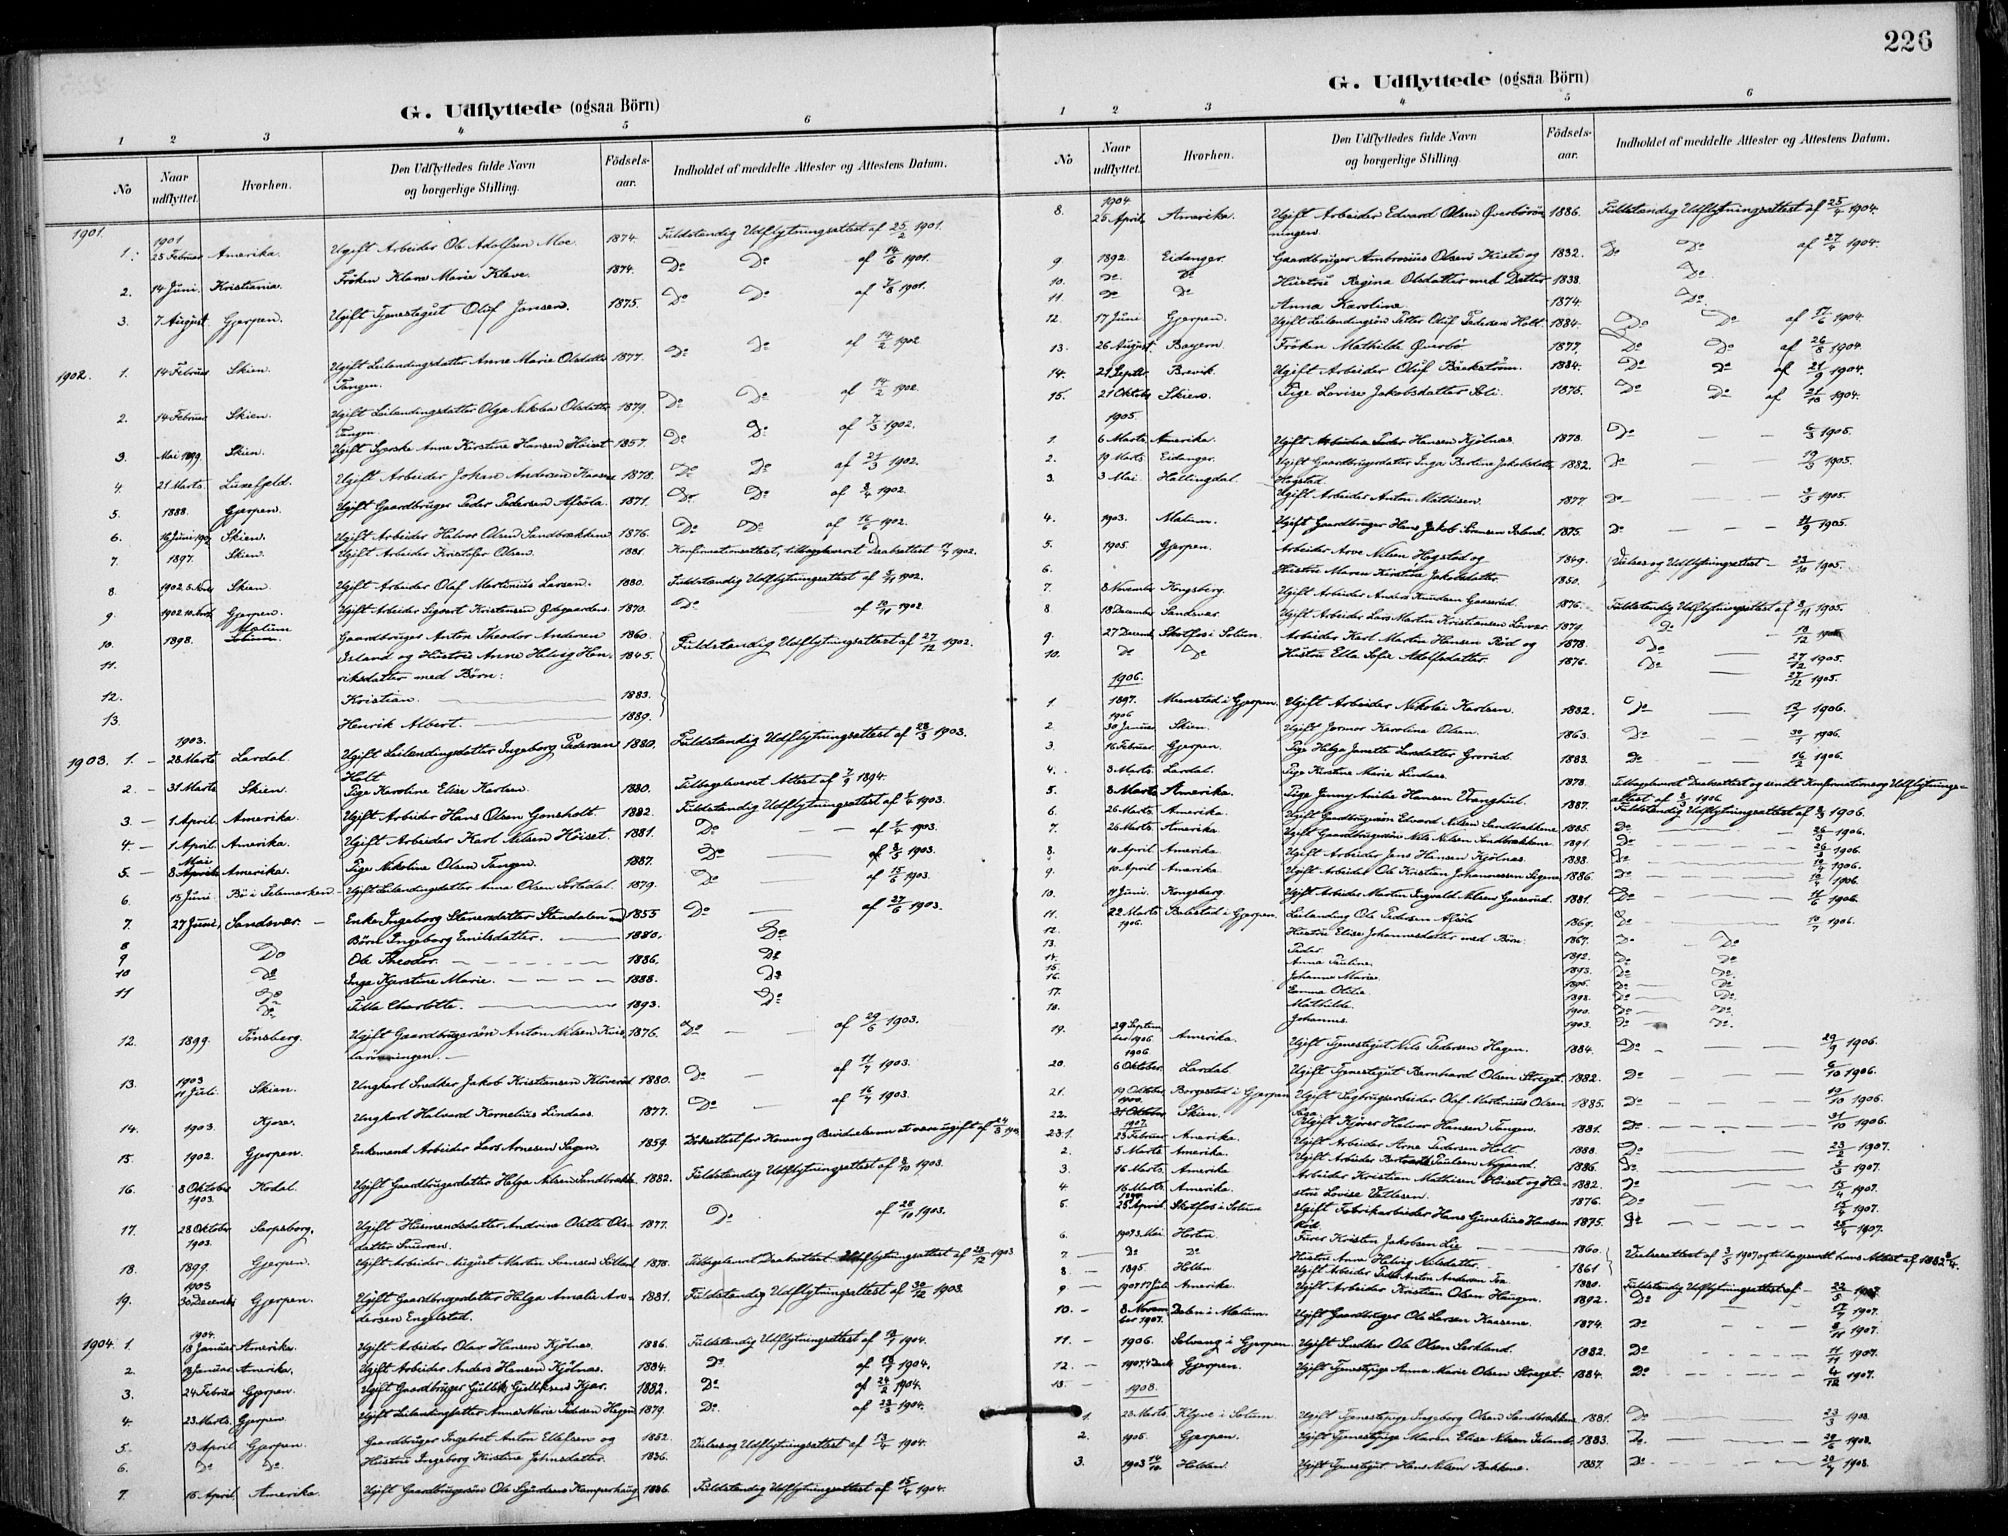 226
G. Udflyttede (ogsaa Börn)
1 2 3 4 5 6
No Naar udflyttet. Hvorhen. Den Udflyttedes fulde Navn og borgerlige Stilling. Födsels-aar. Indholdet af meddelte Attester og Attestens Datum.
1901.
1901
1. 25 Februar Amerika. Ugift Arbeider Ole Adolfsen Moe. 1874. Fuldstændig Udflytningsattest af 25/2 1901.
2. 14 Juni. Kristiania. Frøken Klara Marie Kleve. 1874. Do Do af 14/6 1901.
3. 7 August Gjerpen. Ugift Tjenestegut Oluf Jonsen. 1875. Do Do af 7/8 1901.
1902. 1. 14 Februar Skien. Ugift Leilændingsdatter Anne Marie Olsdatter 1877. Do Do af 14/2 1902
Tangen.
2. 14 Februar Skien. Ugift Leilændingsdatter Olga Nikolea Olsdatter 1879. Do Do af 14/2 1902.
Tangen.
3. Mai 1899 Skien. Ugift Syerske Anne Kirstine Hansen Höiset 1857. Do Do af 7/3 1902.
4. 21 Marts. Ugift Arbeider Johan Andersen Kaasene 1878. Do Do af 21/3 1902.
5. 1888. Gjerpen. Ugift Gaardbruger Peder Pedersen 1871. Do Do af 1902.
6. 16 Juni 1902 Skien. Ugift Arbeider Halvor Olsen Sandbrækkene 1876. Do Do af 16/6 1902.
7. 1897. Skien. Ugift Arbeider Kristofer Olsen. 1881. Konfirmationsattest, tilbageleveret Daabsattest 1902.
8. 1902 Skien. Ugift Arbeider Olaf Martinius Larsen. 1880. Fuldstændig Udflytningsattest af 1902.
9. 1902 Gjerpen. Ugift Arbeider Sigvart Kristensen Ødegaarden. 1870. Do af 1902.
10. 1898. Mælum Gaardbruger Anton Theodor Andersen 1860. Fuldstændig Udflytningsattest af 27/12 1902.
11. Island og Hustru Anne Helvig Hen- 1845.
riksdatter med Börn:
12. Kristian. 1883.
13. Henrik Albert. 1889.
1903.
1903. 1. 28 Marts Lardal. Ugift Leilændingsdatter Ingeborg Pedersen 1880. Fuldstændig Udflytningsattest af 28/3 1903.
Holt
2. 31 Marts Skien. Pige Karoline Elise Karlsen. 1880. Tilbageleveret Attest af 1894.
3. 1 April. Amerika. Ugift Arbeider Hans Olsen Gonsholt. 1882. Fuldstændig Udflytningsattest af 1/4 1903.
4. 1 April. Amerika. Ugift Arbeider Karl Nilsen Höiset. 1881. Do af 1/4 1903.
5. 8 Mai Amerika. Pige Nikoline Olsen Tangen. 1887. Do af 8/5 1903.
6. 15 Juni Bö i Telemarken Ugift Leilændingsdatter Anna Olsen 1879. Do af 15/6 1903.
7. 27 Juni, Sandsvær. Enke Ingeborg Stenersdatter Stendalen med 1855 Do af 27/6 1903.
8 Börn Ingeborg Emilsdatter. 1880. Do
9 Do Ole Theodor. 1886. Do
10 Do Inga Kjerstine Marie. 1888. Do
11 Do Tilla Charlotte. 1893. Do
12. 1899. Tönsberg. Ugift Gaardbrugersön Anton Nilsen 1876. Do af 29/6 1903.
13. 1903 11 Juli. Skien. Ungkarl Snedker Jakob Kristiansen 1880. Do af 11/7 1903.
14. 1903. Kjose. Ungkarl Halvard Kornelius Lindaas. 1877. Do af 16/7 1903.
15. 1902. Gjerpen. Enkemand Arbeider Lars Arnesen Sagen. 1859.
16. 8 Oktober 1903. Kodal. Ugift Gaardbrugerdatter Helga Nilsen Sandbrække. 1882. Fuldstændig Udflytningsattest af 8/10 1903.
17. 28 Oktober 1903. Sarpsborg. Ugift Husmandsdatter Andrine Olette Ols- 1877. Do af 28/10 1903.
18. 1899. Gjerpen. Ugift Arbeider August Martin 1878. Tilbageleveret Daabsattest Udflytningsattest af 1903
19. 1903 30 Decembr. Gjerpen. Ugift Gaardbrugerdatter Helga Amalie An- 1881. Fuldstændig Udflytningsattest af 30/12 1903.
dersen Engelstad.
1904.
1904. 1. 18 Januar Amerika. Ugift Arbeider Olav Hansen Kjölnæs. 1886. Fuldstændig Udflytningsattest af 1904.
2. Januar Amerika. Ugift Arbeider Anders Hansen Kjölnæs. 1884. Do af 1904.
3. 24 Februar Gjerpen. Ugift Gaardbruger Gullik Gulliksen Kjær. 1882. Do af 24/2 1904.
4. 23 Marts. Gjerpen. Ugift Leilændingdatter Anne Marie Pedersen 1879. Do af 23/3 1904.
5. 13 April Gjerpen. Gaardbruger Ingebret Anton Ellefsen og 1852. Vielses og Udflytningsattest af 13/4 1904.
6. Do Do. Hustru Ingeborg Kirstine Johnsdatter. 1836.
7. 15 April Amerika. Ugift Gaardbrugersön Ole Kamperhaug 1886. Fuldstændig Udflytningsattest af 15/4 1904.
G. Udflyttede (ogsaa Börn)
1 2 3 4 5 6
No Naar udflyttet. Hvorhen. Den Udflyttedes fulde Navn og borgerlige Stilling. Födsels-aar. Indholdet af meddelte Attester og Attestens Datum.
1904
8. 25 April Amerika. Ugift Arbeider Edvard Olsen Øverbörö- 1886. Fuldstændig Udflytningsattest af 25/4 1904.
ningen.
9. 1892. Eidanger. Gaardbruger Ambrosius Olsen Kiste og 1832. Do Do af 27/4 1904.
10. Do. Do Hustru Regina Olsdatter med Datter 1838. Do.
11. Do Do Anna Karoline. 1874. Do.
12. 17 Juni Gjerpen. Ugift Leilændingsön Petter Oluf Pedersen Holt. 1884. Do Do af 17/6 1904.
13. 26 August Bayern. Frøken Mathilde Øverbö 1877. Do Do af 26/8 1904.
14. 21 Septbr. Brevik. Ugift Arbeider Oluf Bäckström. 1884. Do Do af 21/9 1904.
15. 21 Oktober Skien. Pige Lovise Jakobsdatter Soli. 1875. Do Do af 21/10 1904.
1905.
1. 6 Marts Amerika. Ugift Arbeider Peder Hansen Kjölnæs. 1878. Do 6/3 1905.
2. 19 Marts Eidanger. Ugift Gaardbrugerdatter Inga Bertine Jakobsdatter 1882. Do 19/3 1905.
Hogstad
3. 3 Mai Hallingdal. Ugift Arbeider Anton Mathisen. 1877. Do 3/5 1905.
4. 1903. Mælum. Ugift Gaardbruger Hans Jakob Island. 1875. Do 1905.
5. 1905. Gjerpen. Arbeider Arve Nilsen Hogstad og 1849. Vielses og Udflytningsattest 23/10 1905.
6. Hustru Maren Kirstine Jakobsdatter. 1850.
7. 8 November Kongsberg. Ugift Arbeider Anders Knudsen Gaaserud. 1876. Fuldstændig Udflytningsattest af 8/11 1905.
8. 18 December Sandsvær. Ugift Arbeider Lars Martin Kristiansen 1879. Do 18/12 1905
9. 27 Decemb. Skotfos i Solum. Arbeider Karl Martin Hansen Röd og 1878. Do 27/12 1905.
10. Do Do. Hustru Ella Sofie Adolfsdatter. 1876. Do 27/12 1905.
1906.
1. 1897. Menstad i Gjerpen. Ugift Arbeider Nikolai Karlsen. 1882. Do 1906.
1906
2. 30 Januar Skien. Ugift Jormor Karoline Olsen. 1863. Do 30/1 1906.
3. 16 Februar Gjerpen. Pige Helga Jonette Larsdatter Grorud. 1883. Do 16/2 1906.
4. 3 Marts. Lardal. Pige Kirstine Marie Lindaas. 1878. Tilbagesendt Daabsattest og sendt Konfirmations og Udflytnings-
attest af 3/3 1906.
5. 8 Marts Amerika. Pige Jenny Amilie Hansen 1887. Fuldstændig Udflytningsattest af 8/3 1906.
6. 26 Marts. Amerika. Ugift Gaardbrugersön Edvard Nilsen Sandbrækkene 1885. Do 26/3 1906.
7. 26 Marts. Amerika. Ugift Gaardbrugersön Nils Nilsen Sandbrækkene 1891. Do 26/3 1906.
8. 10 April Amerika. Ugift Arbeider Jens Hansen Kjölnæs. 1888. Do 1906.
9. 10 April. Amerika. Ugift Arbeider Ole Kristian Johannessen 1886. Do 1906.
10. 11 Juni. Kongsberg. Ugift Arbeider Martin Ingvald Nilsen Gaaserud. 1881. Do 11/6 1906.
11. 22 Marts 1906. Bølestad i Gjerpen. Leilænding Ole Pedersen 1869. Do 1906.
12. Hustru Elise Johannesdatter med Börn 1867. Do Do
13. Peder. 1892. Do Do
14. Anna Pauline. 1893. Do Do.
15. Johanne Marie. Do Do.
16. Emma Otilie. 1898. Do Do.
17. Mathilde. 1900. Do Do.
18. Johannes. 1903. Do Do.
19. 29 Septem ber 1906 Amerika. Ugift Tjenestegut Nils Pedersen Hagen. 1884. Do 29/9 1906.
1906
20. 6 Oktober. Lardal. Ugift Tjenestegut Bernhard Olsen Streget. 1882. Do 6/10 1906.
21. 19 Oktober Borgestad i Gjerpen Ugift Sagbrugarbeider Oluf Martinius Olsen 1885. Do 19/10 1906.
22. 31 Oktober Skien. Ugift Kjörer Halvor Hansen Tangen. 1881. Do 31/10 1906.
1907.
23.1. 23 Februar Amerika. Ugift Arbeider Arne Pedersen Holt. 1888. Do 23/2 1907.
2. 5 Marts. Amerika. Ugift Arbeider Paulsen Nygaard. 1886. Do 5/3 1907.
3. 16 Marts. Amerika Arbeider Kristian Mathisen Höiset og Hu- 1882. Do 1907.
4. 16 Marts. Amerika. stru Lovise 1876. Do 1907.
5. 25 April Skotfos i Solum Ugift Fabrikarbeider Hans Hansen 1875. Do 25/4 1907.
Röd.
6. 1907 3 Mai Horten. Kristen Jakobsen Lie 1860. Vielsesattest af 3/5 1907 og tilbagesendt hans Attest af 1882
7. Do Do. Hustru Anna Helvig Nilsdatter. 1861
8. 1895. Ugift Arbeider Peder Anton Andersen 1880. Fuldstændig Udflytningsattest af 1907.
9. 1907 17 Juli Amerika. Ugift Arbeider Kristian Olsen Haugen. 1892. Do 17/7 1907.
10. 8 Novem ber 1907. Dalen i Mælum. Ugift Gaardbruger Ole Larsen Kaasene. 1874. Do 8/11 1907.
11. 1906. Solvang i Gjerpen. Ugift Snedker Ole Olsen 1882. Do 11/11 1907.
12. 1907 Gjerpen. Ugift Tjenestepige Anna Marie Olsen Streget. 1884. Do 4/12 1907.
13.
1908.
1. 23 Marts Klyve i Solum. Ugift Tjenestepige Ingeborg Olsen Sandbrækkene 1881. Do 23/3 1908.
2. 1906. Gjerpen. Ugift Tjenestepige Maren Elise Nilsen Island. 1883. Do. 1908.
3. 1903 Holden. Ugift Tjenestegut Hans Nilsen Bakkene. 1887. Do. 1908.